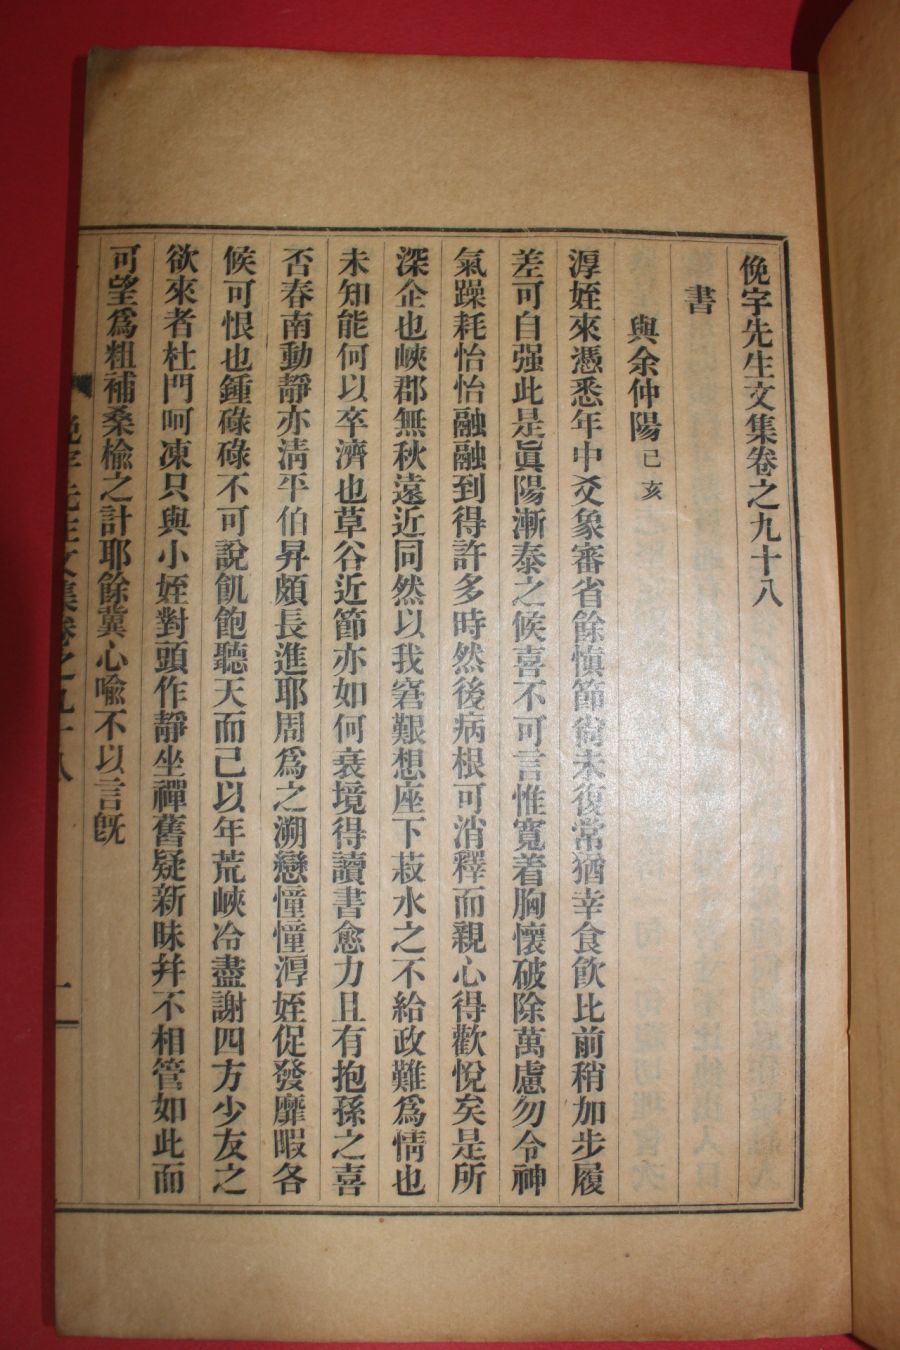 俛宇先生文集卷之九十八
書
與余仲陽己亥
淳姪來憑悉年中爻象審省餘愼節尙未復常猶幸食飮比前稍加步履
差可自强此是眞陽漸泰之候喜不可言惟寬着胸懷破除萬慮勿令神
氣躁耗怡怡融融到得許多時然後病根可消釋而親心得歡悅矣是所
深企也峽郡無秋遠近同然以我窘艱想座下菽水之不給政難爲情也
未知能何以卒濟也草谷近節亦如何衰境得讀書愈力且有抱孫之喜
否春南動靜亦淸平伯昇頗長進耶周爲之溯戀憧憧淳姪促發靡暇各
候可恨也鍾碌碌不可說飢飽聽天而已以年荒峽冷盡謝四方少友之
欲來者杜門呵凍只與小姪對頭作靜坐禪舊疑新昧幷不相管如此而
可望爲粗補桑楡之計耶餘冀心喩不以言旣
俛宇先生文集卷之九十八
一